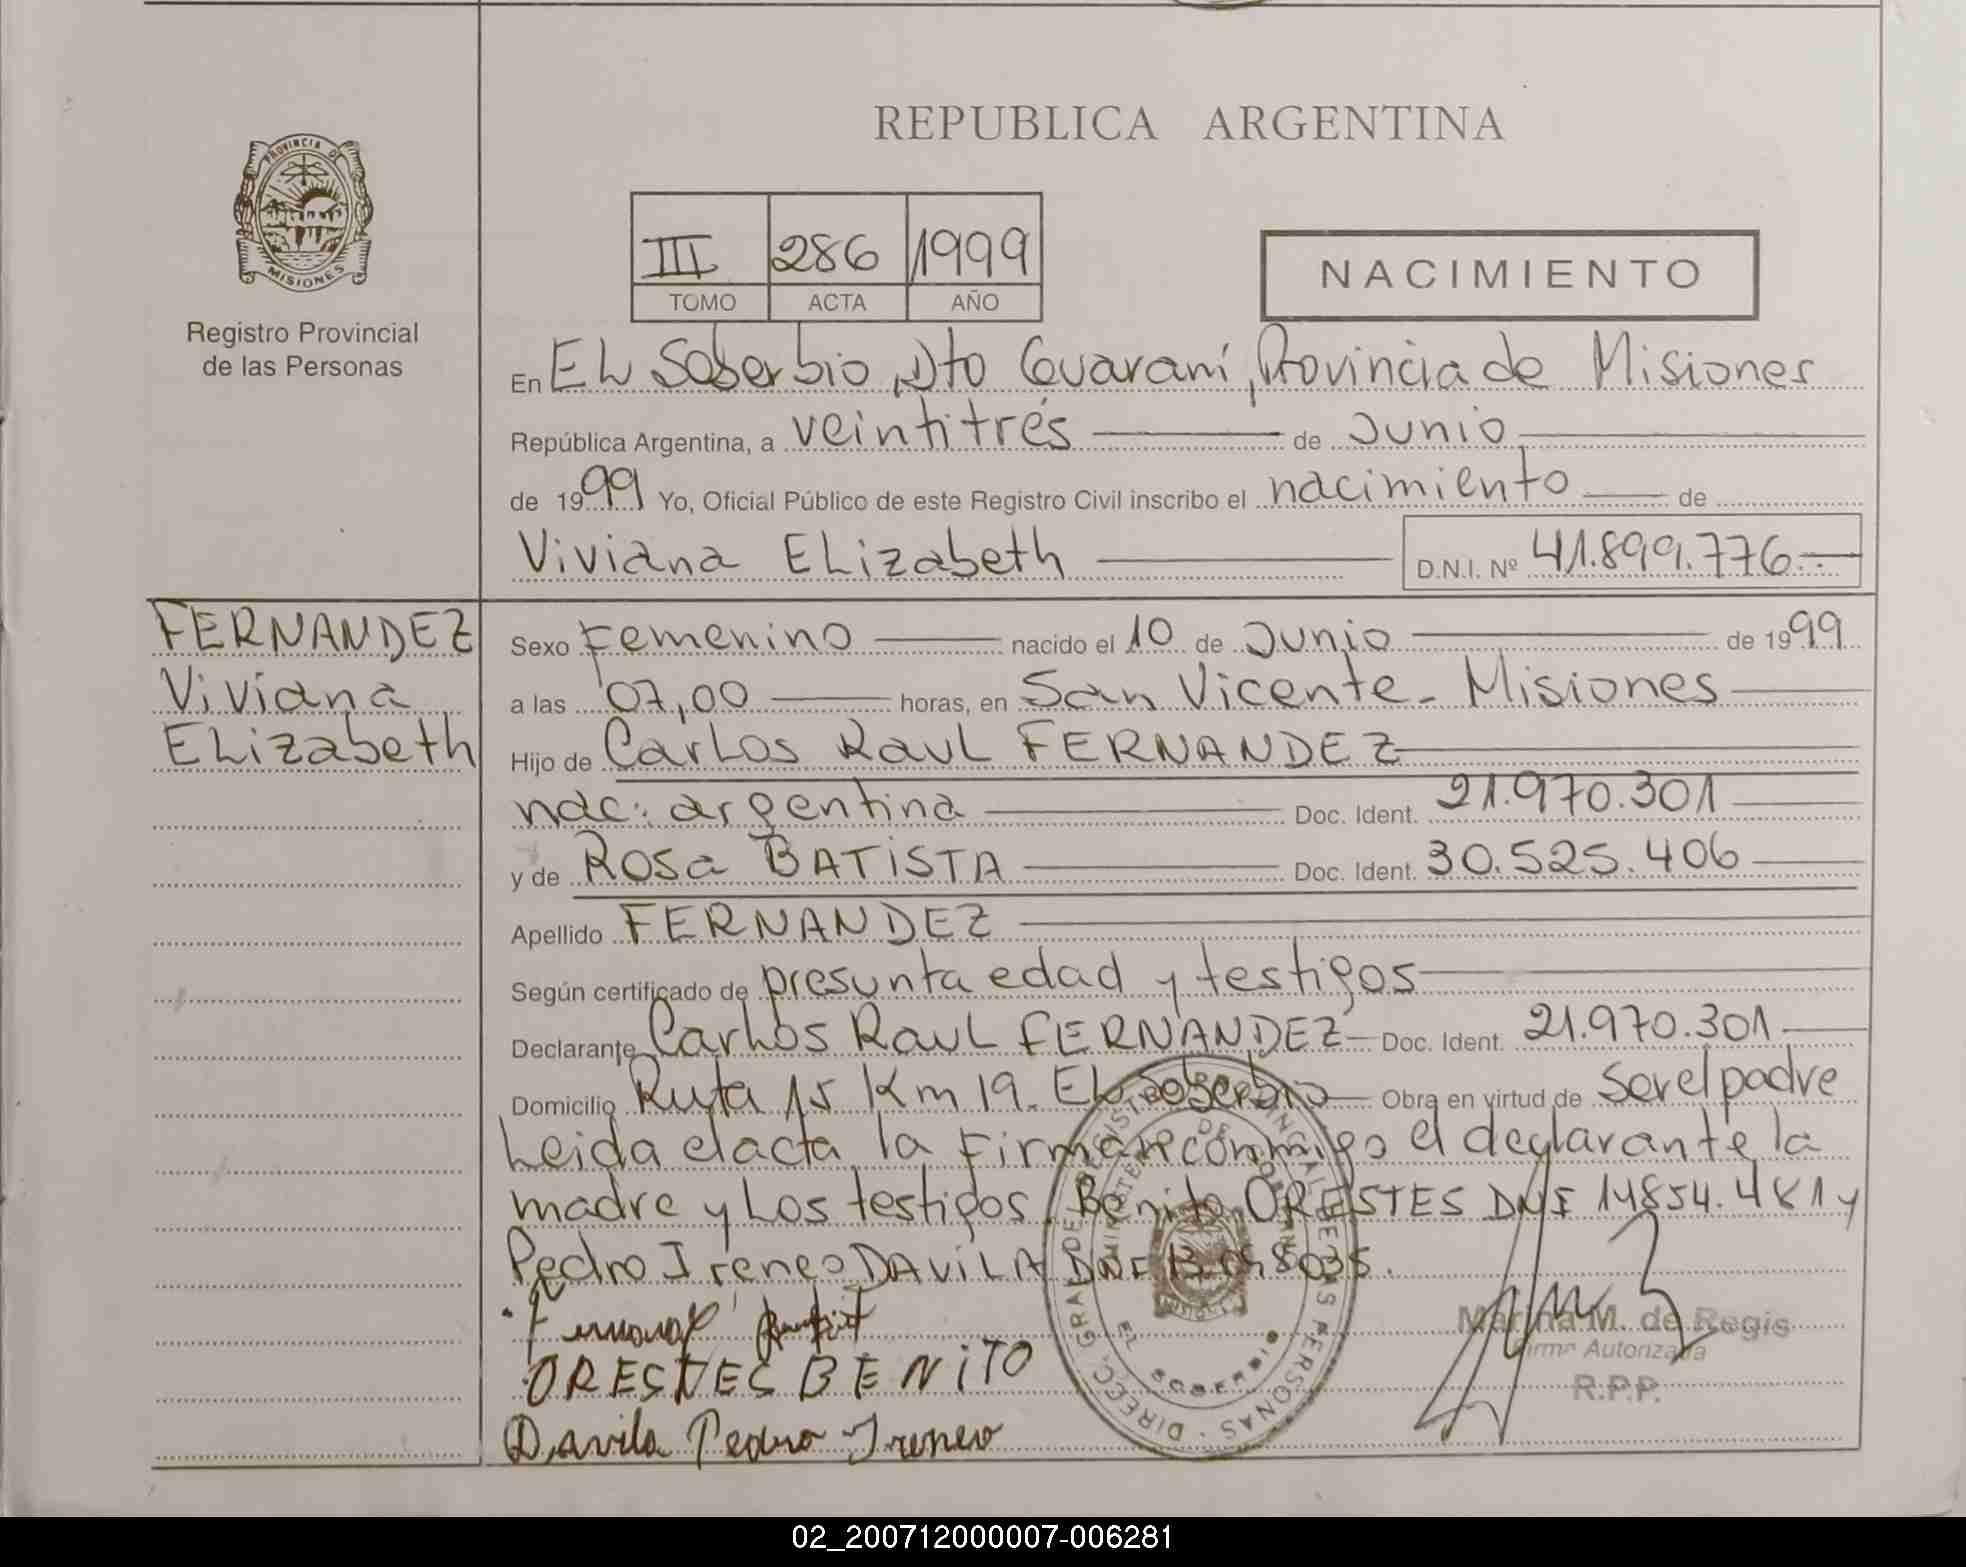 REPUBLICA ARGENTINA
PROVINCIA DE
MISIONES
Registro Provincial
de las Personas
III 286 1999
TOMO ACTA AÑO
NACIMIENTO
En EL Soberbio, Dto Guaraní, Provincia de Misiones
República Argentina, a veintitrés de Junio
de 1999 Yo, Oficial Público de este Registro Civil inscribo el nacimiento de
Viviana ELizabeth D.N.I. Nº 41.899.776.-
FERNANDEZ
Viviana
ELizabeth
Sexo Femenino nacido el 10 de Junio de 1999
a las 07,00 horas, en San Vicente - Misiones
Hijo de CarLos RauL FERNANDEZ
nac: argentina Doc. Ident. 21.970.301
y de Rosa BATiSTA Doc. Ident. 30.525.406
Apellido FERNANDEZ
Según certificado de presunta edad y testigos
Declarante CarLos RauL FERNANDEZ Doc. Ident. 21.970.301
Domicilio Ruta 15 Km 19. EL Soberbio Obra en virtud de ser el padre
Leida el acta, la firman conmigo el declarante la
madre y Los testigos. Benito ORESTES DNI 14854.481 y
Pedro Ireneo DAViLA DNI
ORESTES BENiTO
Davila Pedro Ireneo
DIREC. GRAL DE REGISTRO PROVINCIAL DE LAS PERSONAS
EL SOBERBIO
Marina M. de Regis
Firma Autorizada
R.P.P.
02_200712000007-006281